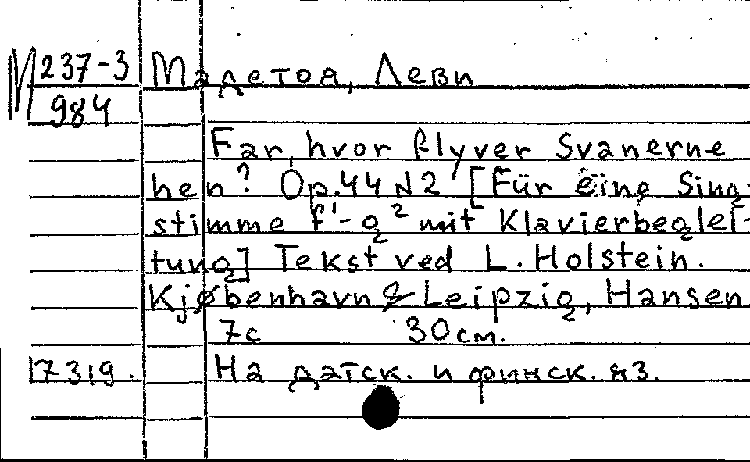 М 237-3 Мадетоя, Леви
984
Far, hvor flyver Svanerne
hen? Op.44 N2 [Für eine Sing-
stimme f¹-g² mit Klavierbeglei-
tung] Tekst ved L. Holstein.
Kjøbenhavn & Leipzig, Hansen
7с 30см.
17319. На датск. и финск. яз.